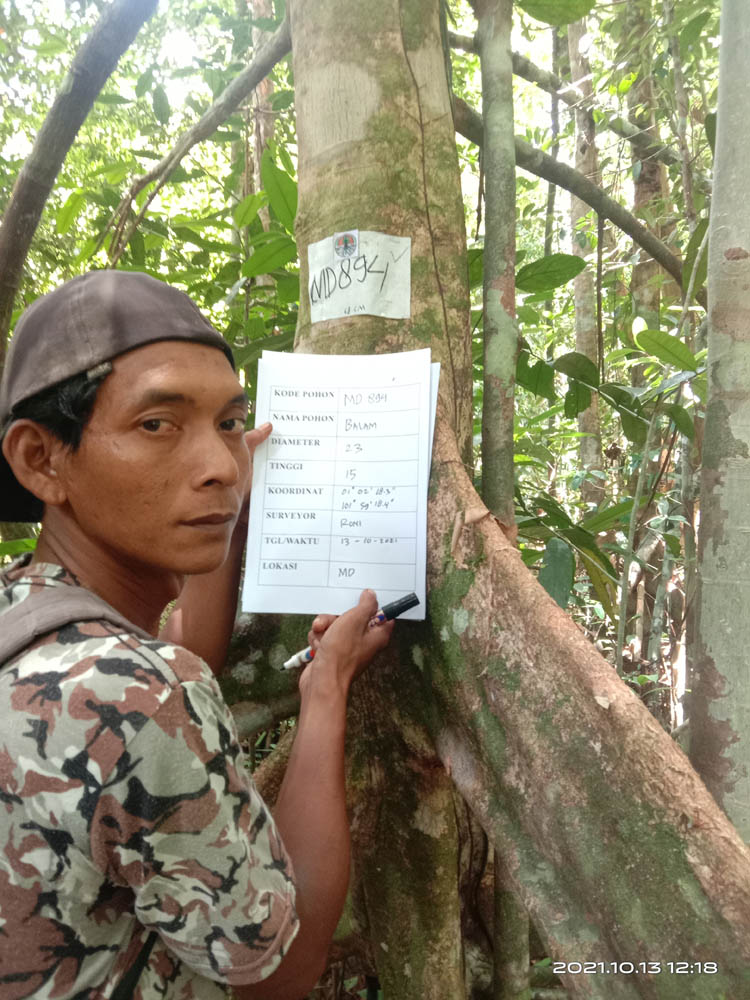 MD894
KODE POHON MD 894
NAMA POHON BALAM
DIAMETER 23
TINGGI 15
KOORDINAT 01° 02' 18.3"
101° 59' 18.4"
SURVEYOR ROMI
TGL/WAKTU 13 - 10 - 2021
LOKASI MD
2021.10.13 12:18